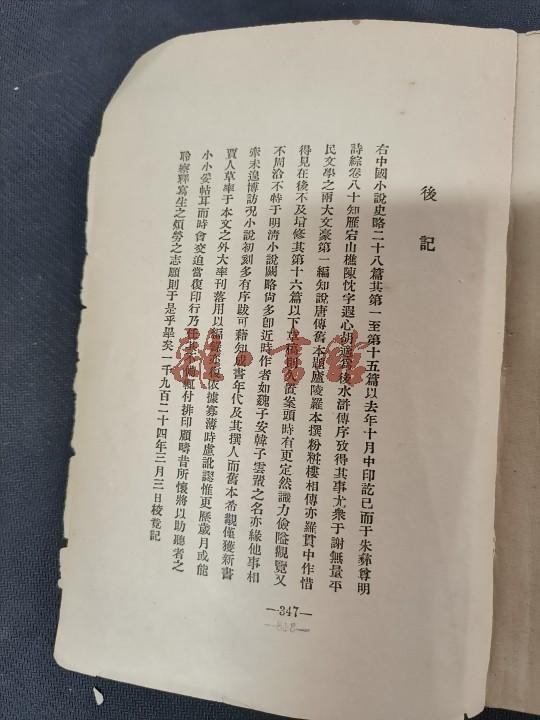 後記
右中國小說史略二十八篇其第一至第十五篇以去年十月中印訖已而于朱彝尊明
詩綜卷八十知雁宕山樵陳忱字遐心胡適爲後水滸傳序攷得其事尤衆于謝無量平
民文學之兩大文豪第一編知說唐傳舊本題廬陵羅本撰粉粧樓相傳亦羅貫中作惜
得見在後不及增修其第十六篇以下草稿則久置案頭時有更定然識力儉隘觀覽又
不周洽不特于明清小說闕略尙多卽近時作者如魏子安韓子雲輩之名亦緣他事相
牽未遑博訪況小說初刻多有序跋可藉知成書年代及其撰人而舊本希覯僅獲新書
賈人草率于本文之外大率刋落用以編錄亦復依據寡薄時慮訛謬惟更歷歲月或能
小小妥帖耳而時會交迫當復印行乃任其不備輒付排印顧疇昔所懷將以助聽者之
聆察釋寫生之煩勞之志願則于是乎畢矣一千九百二十四年三月三日校竟記
—347—